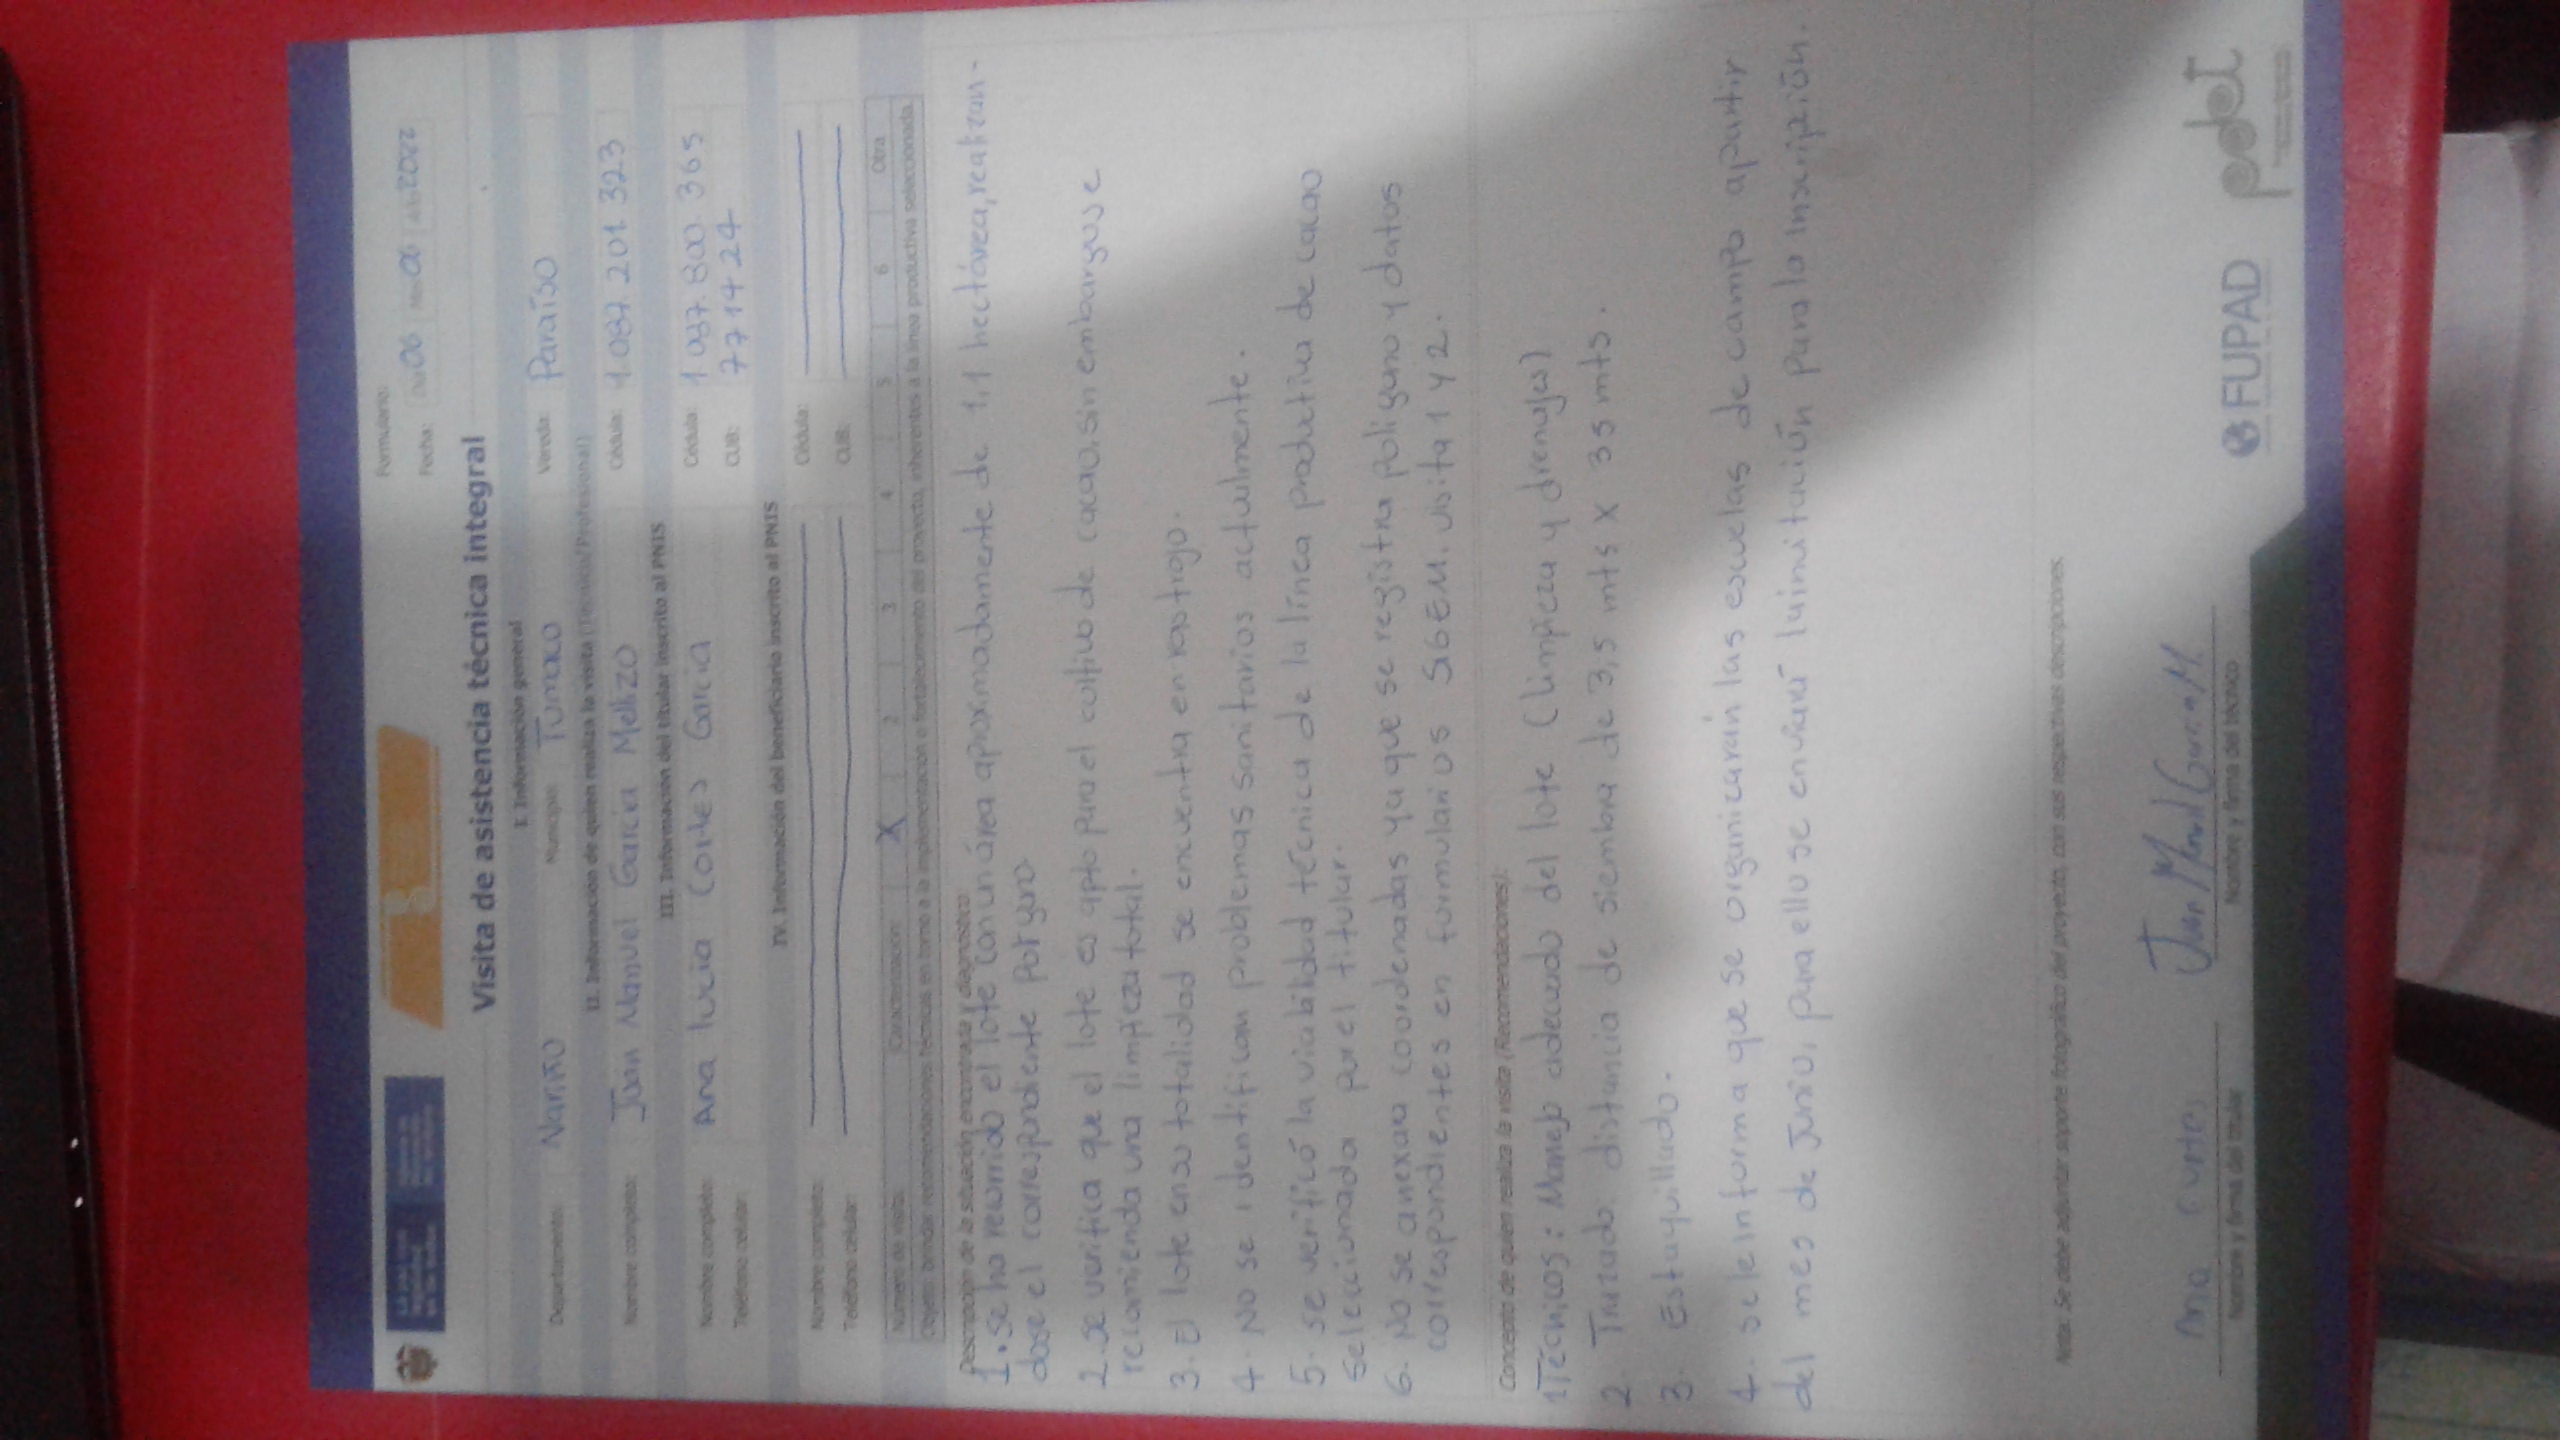 Formulario:
Fecha: Día 06 Mes 06 Año 2022
Visita de asistencia técnica integral
I. Información general
Departamento: Nariño Municipio: Tumaco Vereda: Paraíso
II. Información de quien realiza la visita (Técnico/Profesional)
Nombre completo: Juan Manuel García Mellizo Cédula: 1.087.201.323
III. Información del titular inscrito al PNIS
Nombre completo: Ana lucia Cortes García Cédula: 1 087.800 365
Teléfono celular: CUB: 7714424
IV. Información del beneficiario inscrito al PNIS
Nombre completo: Cédula:
Teléfono celular: CUB:
Número de visita: Caracterización: X 2 3 4 5 6 Otra
Objeto: brindar recomendaciones técnicas en torno a la implementación o fortalecimiento del proyecto, inherentes a la línea productiva seleccionada.
Descripción de la situación encontrada y diagnóstico
1. se ha recorrido el lote con un área aproximadamente de 1,1 hectárea, realizan-
dose el correspondiente Polygono.
2. se verifica que el lote es apto para el cultivo de cacao, sin embargo se
recomienda una limpieza total.
3. El lote en su totalidad se encuentra en rastrojo.
4. No se identifican problemas sanitarios actualmente.
5. se verificó la viabilidad técnica de la línea productiva de cacao
seleccionada por el titular.
6. No se anexan coordenadas ya que se registra poligono y datos
correspondientes en formularios SIGEM. visita 1 y 2.
Concepto de quien realiza la visita (Recomendaciones):
1 Técnicos: Manejo adecuado del lote (limpieza y drenajes)
2. Trazado: distancia de siembra de 3,5 mts x 35 mts.
3. Estaquillado.
4. se le informa que se organizarán las escuelas de campo apartir
del mes de Junio, para ello se enviará la invitación para la inscripción.
Nota: Se debe adjuntar soporte fotográfico del proyecto, con sus respectivas descripciones.
Ana Cortes Juan Manuel García M.
Nombre y firma del titular Nombre y firma del técnico
FUPAD pdet